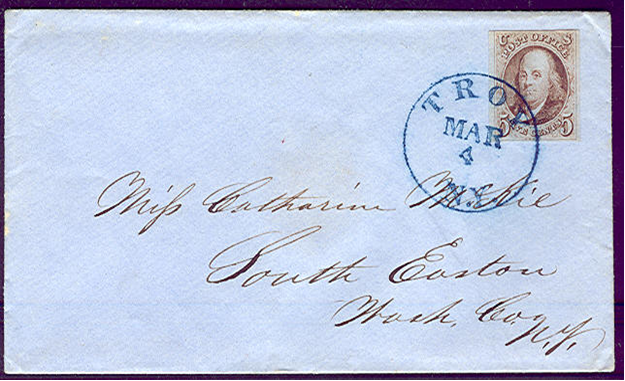 POST OFFICE
FIVE CENTS
5 5
TROY
MAR
4
N.Y.
Miss Catharine McKie
South Easton
Wash. Co.
N.Y.